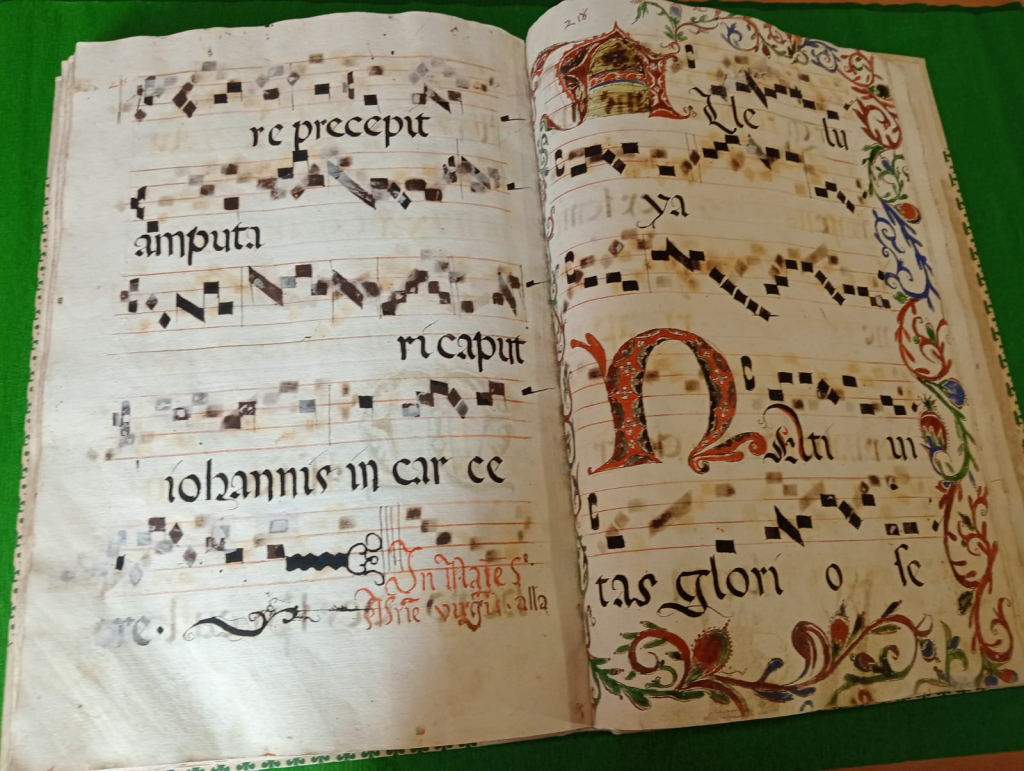 re precepit
amputa
ri caput
iohannis in car ce
re.
In Natẽ S.
Mrĩe virgũs. alla
218
Alle lu
ya
NAti in
tas glori o se